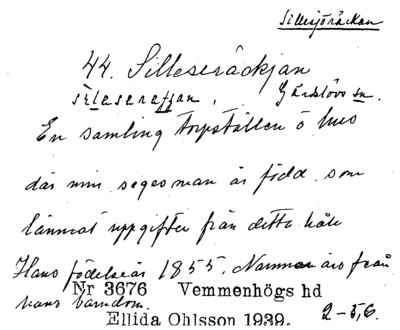 Sillesjöräckan
44. Silleseräckjan
Gärdslövs sn.
En samling torpställen o hus
där min sagesman är född som
lämnat uppgifter från detta håll
Hans födelseår 1855. Namnen äro från
hans barndom.
Nr 3676 Vemmenhögs hd
Ellida Ohlsson 1939. 2-5,6.